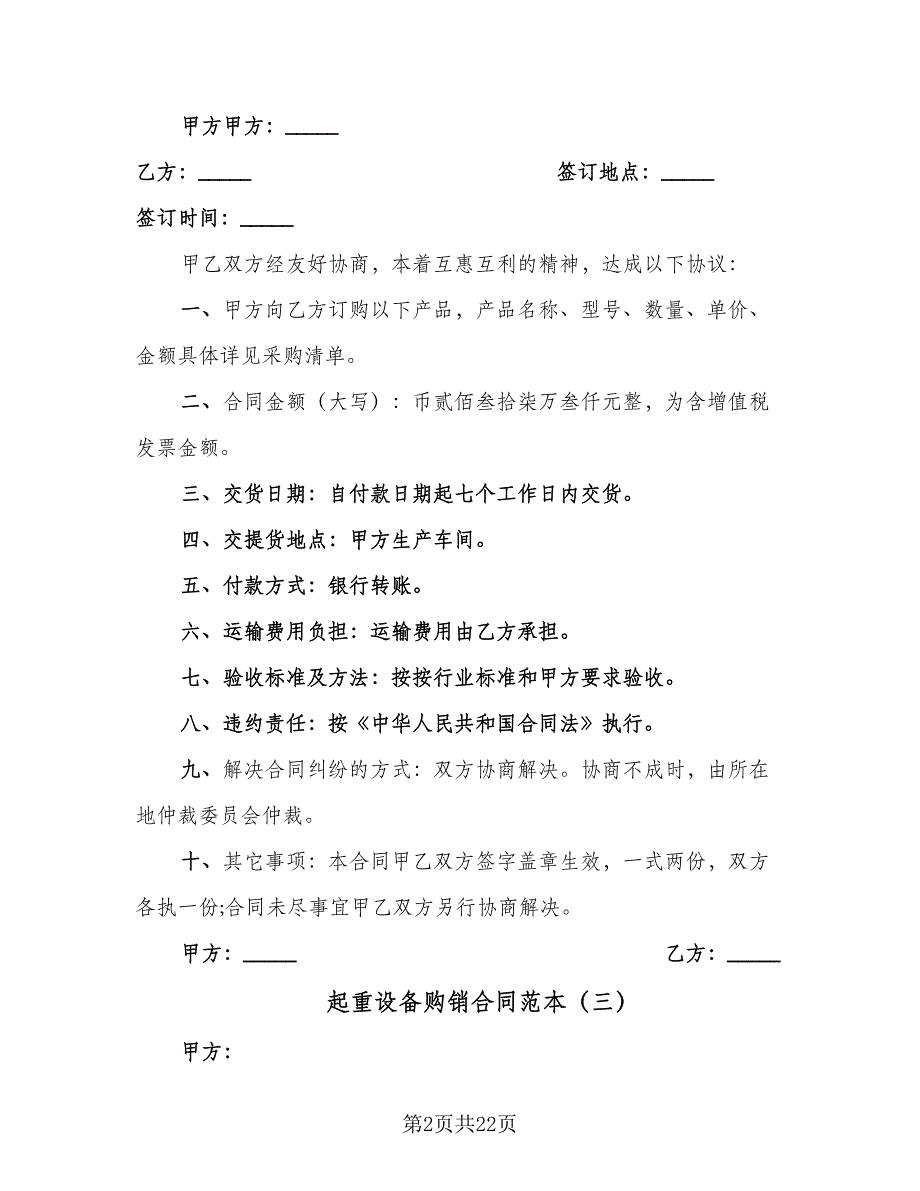 甲方甲方：_____
乙方：_____ 签订地点：_____
签订时间：_____
甲乙双方经友好协商，本着互惠互利的精神，达成以下协议：
一、甲方向乙方订购以下产品，产品名称、型号、数量、单价、
金额具体详见采购清单。
二、合同金额（大写）：币贰佰叁拾柒万叁仟元整，为含增值税
发票金额。
三、交货日期：自付款日期起七个工作日内交货。
四、交提货地点：甲方生产车间。
五、付款方式：银行转账。
六、运输费用负担：运输费用由乙方承担。
七、验收标准及方法：按按行业标准和甲方要求验收。
八、违约责任：按《中华人民共和国合同法》执行。
九、解决合同纠纷的方式：双方协商解决。协商不成时，由所在
地仲裁委员会仲裁。
十、其它事项：本合同甲乙双方签字盖章生效，一式两份，双方
各执一份;合同未尽事宜甲乙双方另行协商解决。
甲方：_____ 乙方：_____
起重设备购销合同范本（三）
甲方：
第2页共22页